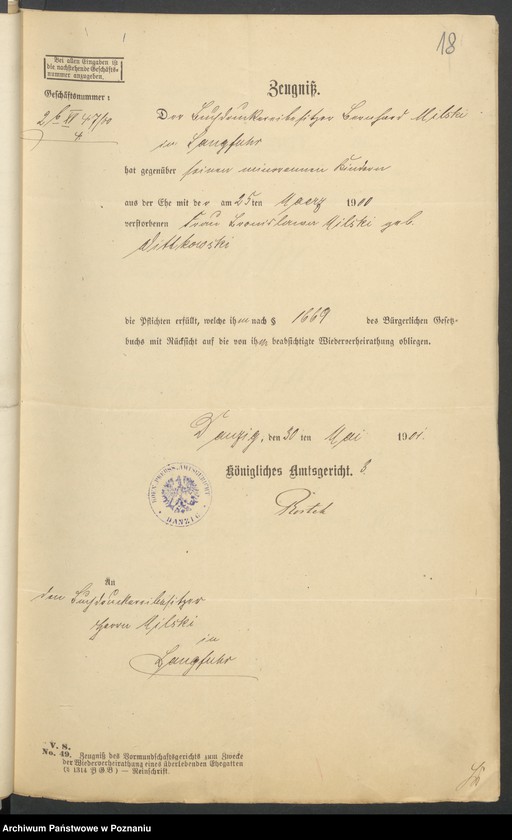 18
Bei allen Eingaben ist
die nachstehende Geschäfts-
nummer anzugeben.
Geschäftsnummer:
2 b XI 47/00
4
Zeugniß.
Der Buchdruckereibesitzer Bernhard Milski
in Langfuhr
hat gegenüber seinen minorennen Kindern
aus der Ehe mit der am 25ten Maerz 1900
verstorbenen Frau Bronislawa Milski geb.
Dittkowski
die Pflichten erfüllt, welche ihm nach § 1669 des Bürgerlichen Gesetz-
buchs mit Rücksicht auf die von ihm beabsichtigte Wiederverheirathung obliegen.
Danzig, den 30 ten Mai 1901.
Königliches Amtsgericht. 3
KÖN. PREUSS. AMTSGERICHT
* DANZIG *
An
den Buchdruckereibesitzer
Herrn Milski
in
Langfuhr
V. S.
No. 49. Zeugniß des Vormundschaftsgerichts zum Zwecke
der Wiederverheirathung eines überlebenden Ehegatten
(§ 1314 BGB) — Reinschrift.
Archiwum Państwowe w Poznaniu
www.szukajwarchiwach.gov.pl